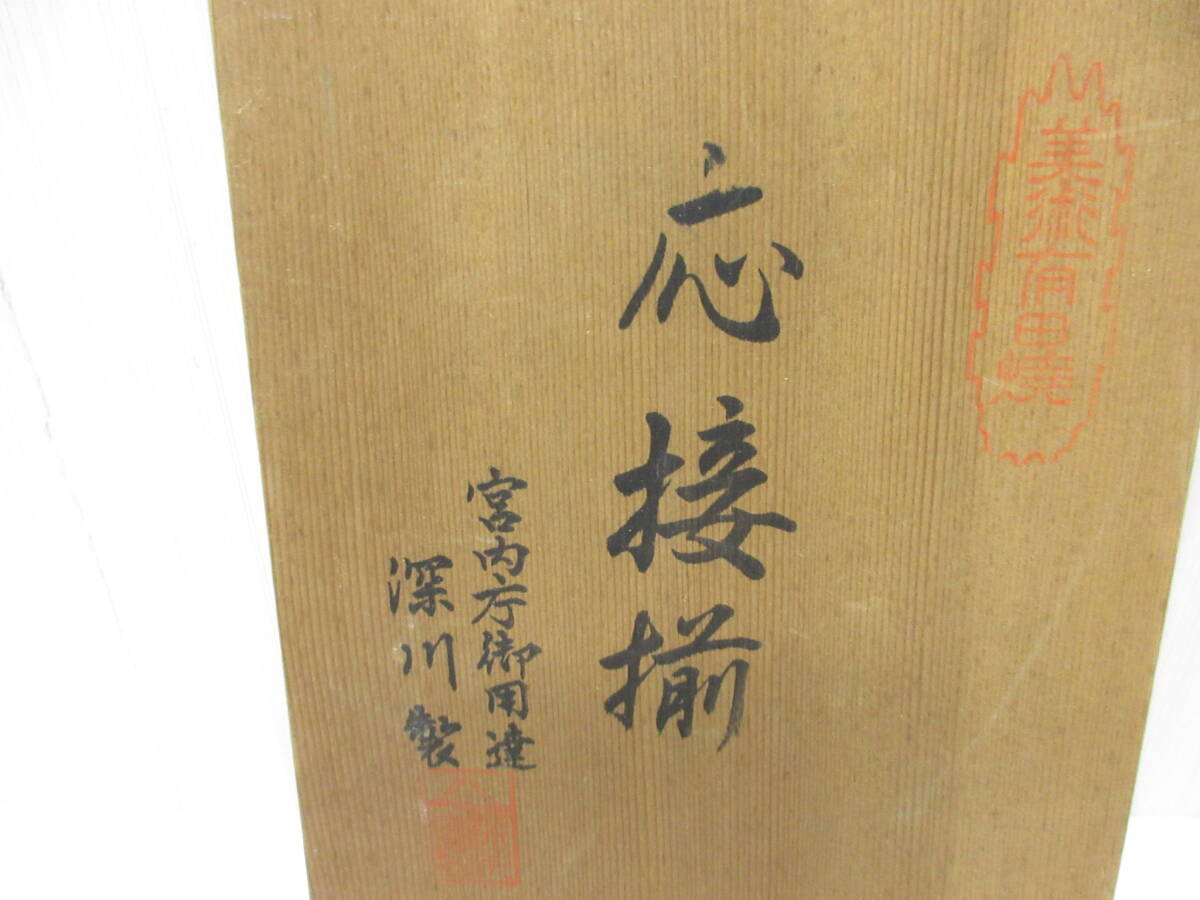 美術有田燒
応接揃
宮内庁御用達
深川製